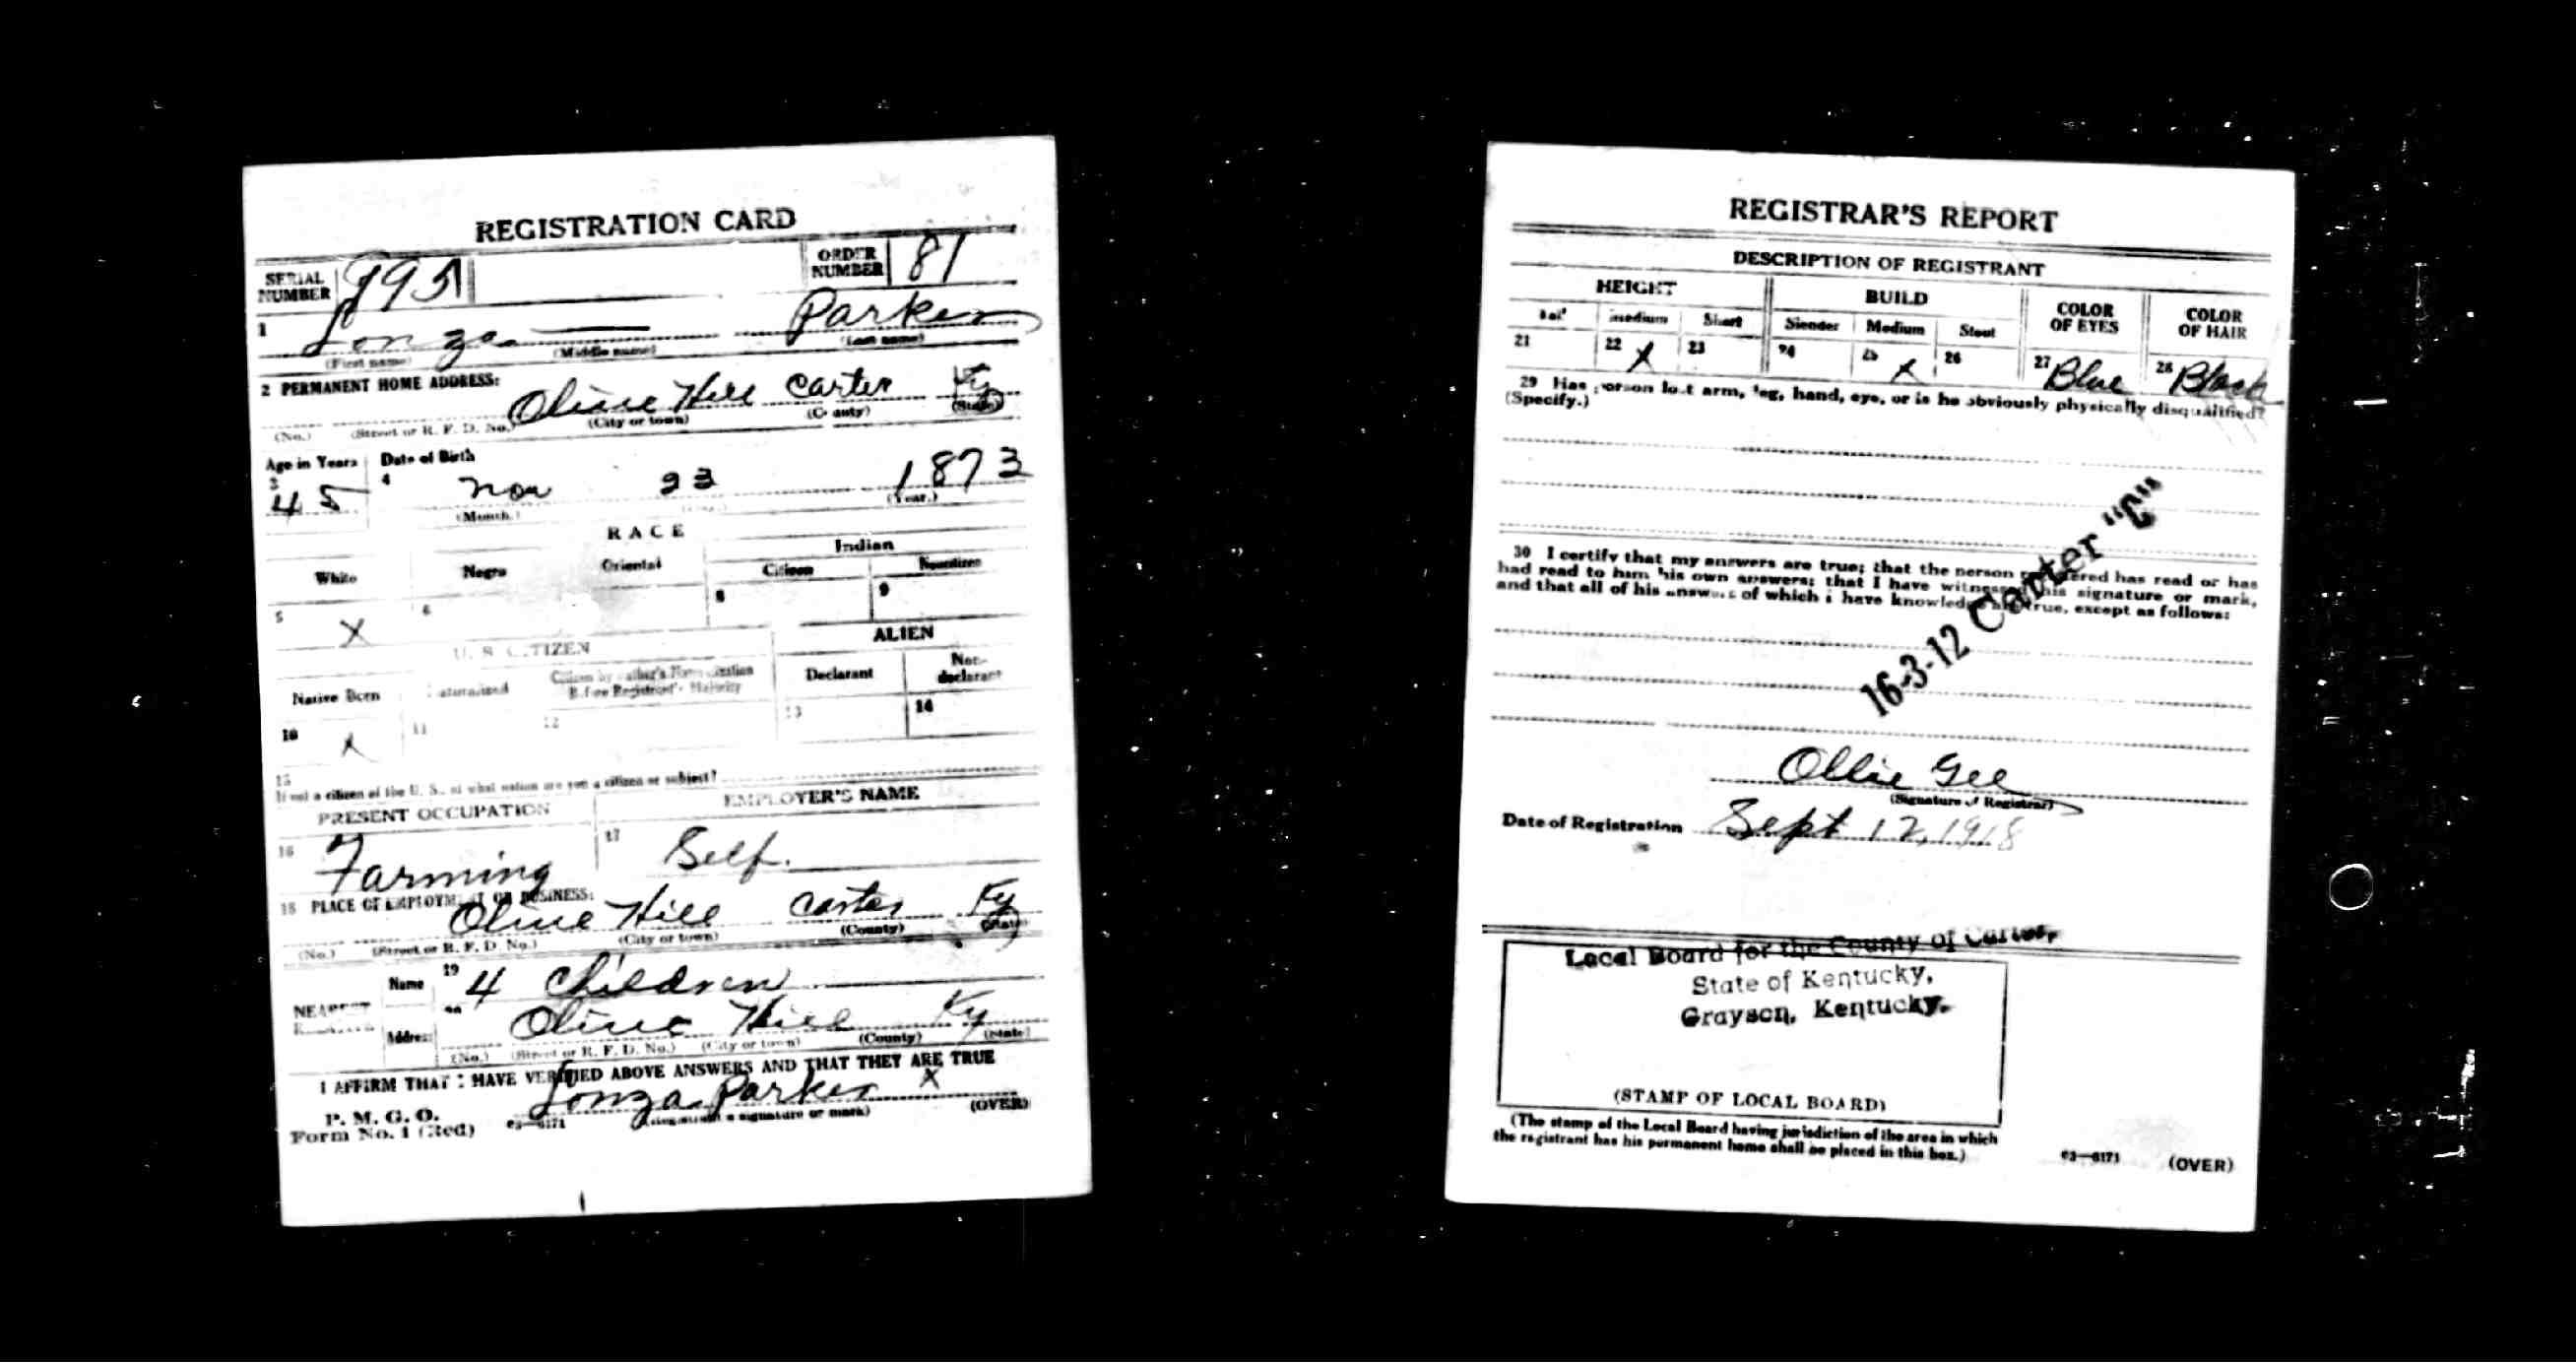 REGISTRATION CARD
SERIAL NUMBER 895 ORDER NUMBER 81
1 Lonza Parker
(First name) (Middle name) (Last name)
2 PERMANENT HOME ADDRESS:
Olive Hill Carter Ky
(No.) (Street or R. F. D. No.) (City or town) (County) (State)
Age in Years Date of Birth
3 45 4 Nov 23 1873
(Month.) (Year.)
RACE
White Negro Oriental Indian
Citizen Noncitizen
5 X 6 8 9
U. S. CITIZEN ALIEN
Native Born Naturalized Citizen by Father's Naturalization Before Registrant's Majority Declarant Non-declarant
10 X 11 12 13 14
15 If not a citizen of the U. S., of what nation are you a citizen or subject?
PRESENT OCCUPATION EMPLOYER'S NAME
16 Farming 17 Self.
18 PLACE OF EMPLOYMENT OR BUSINESS:
Olive Hill Carter Ky
(No.) (Street or R. F. D. No.) (City or town) (County) (State)
NEAREST Name 19 4 Children
Address Olive Hill Ky
(No.) (Street or R. F. D. No.) (City or town) (County) (State)
I AFFIRM THAT I HAVE VERIFIED ABOVE ANSWERS AND THAT THEY ARE TRUE
P. M. G. O.
Form No. 1 (Red) 03—6171 Lonza Parker X
(Registrant's signature or mark) (OVER)
REGISTRAR'S REPORT
DESCRIPTION OF REGISTRANT
HEIGHT BUILD COLOR OF EYES COLOR OF HAIR
Tall Medium Short Slender Medium Stout
21 22 X 23 24 25 X 26 27 Blue 28 Black
29 Has person lost arm, leg, hand, eye, or is he obviously physically disqualified?
(Specify.)
30 I certify that my answers are true; that the person registered has read or has
had read to him his own answers; that I have witnessed his signature or mark,
and that all of his answers of which I have knowledge are true, except as follows:
16-3-12 Carter "C"
Ollie Gee
(Signature of Registrar)
Date of Registration Sept 12, 1918
Local Board for the County of Carter,
State of Kentucky,
Grayson, Kentucky.
(STAMP OF LOCAL BOARD)
(The stamp of the Local Board having jurisdiction of the area in which
the registrant has his permanent home shall be placed in this box.)
03—6171 (OVER)